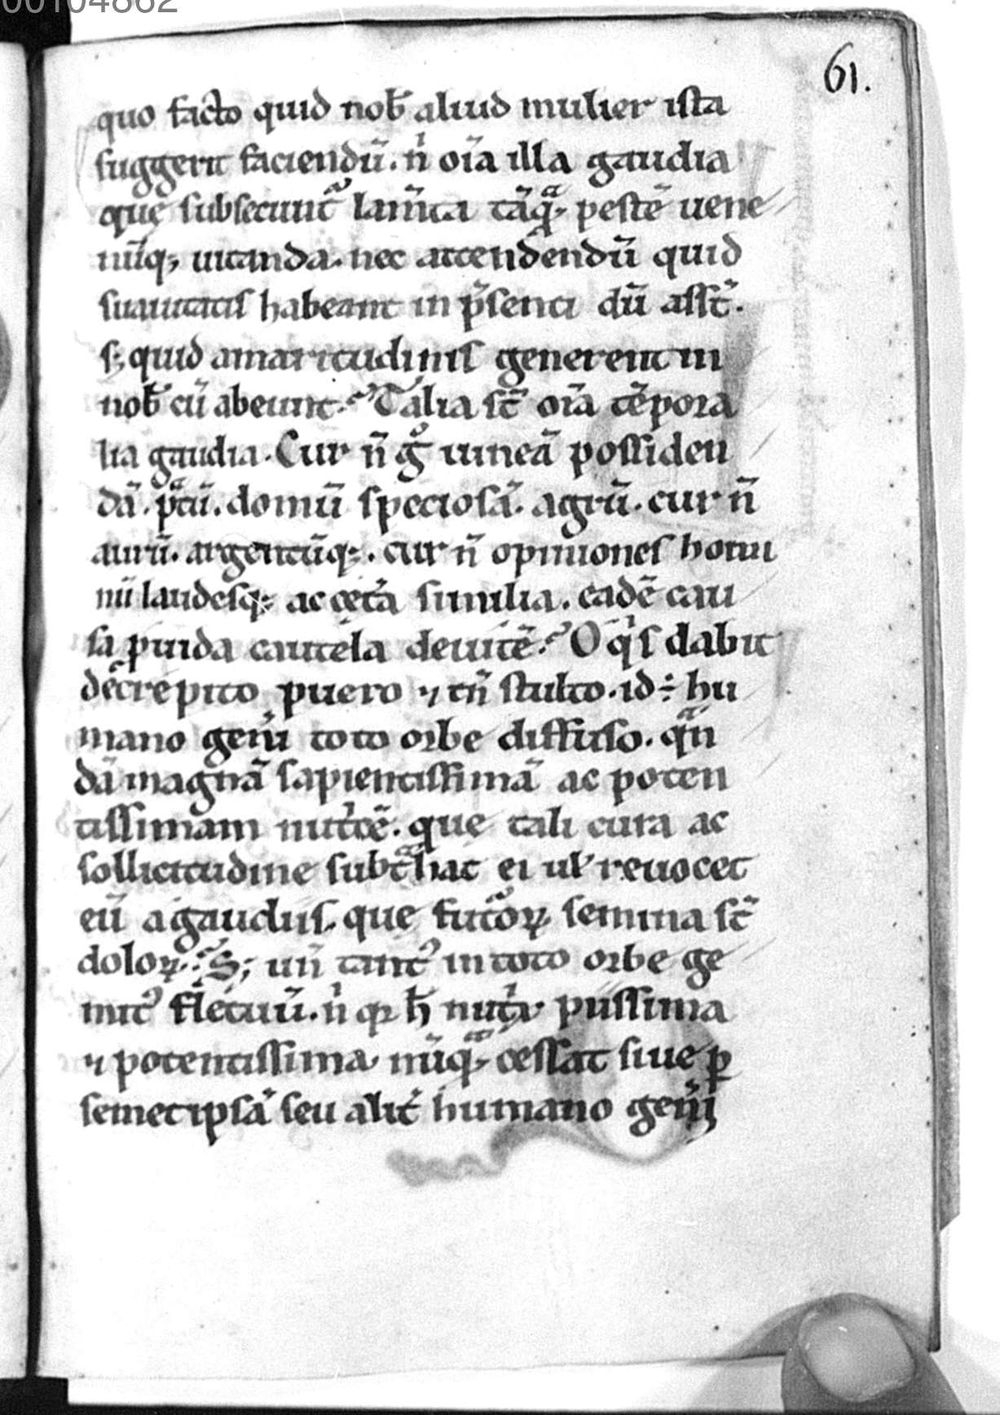 00104862
61.
quo facto quid nob̄ aliud mulier ista
suggerit faciendū. nͥ oīa illa gaudia
que subsecuntᷣ lam̄ta tāqͣ̄ꝫ pestē uene
nūqꝫ uitanda. nec attendendū quid
suauitatis habeant in p̄senti dū asst̄.
sꝫ quid amaritudinis generent in
nob̄ cū abeunt. Talia st̄ oīa tēpora
lia gaudia. Cur n̄ gͦ uineā possiden
dā. pͣtū. domū speciosā. agrū. cur n̄
aurū. argentūqꝫ. cur n̄ opiniones homi
nū laudesqꝫ ac cet̄a similia. eadē cau
sa puida cautela deuitē. O qͥs dabit
decrepito puero ⁊ tn̄ stulto. id ÷ hu
mano genͥi toto orbe diffuso. qͣn
dā magnā sapientissimā ac poten
tissimam nutͥcē. que tali cura ac
sollicitudine subtͣhat ei ul̄ reuocet
eū a gaudiis. que futoꝝ semina st̄
doloꝝ. Sꝫ un̄ tantꝰ in toto orbe ge
mitꝰ fletuū. nͥ qꝛ h̄ nutͥx piissima
⁊ potentissima nūqͣꝫ cessat siue ꝑ
semet ipsā seu alit̄ humano genͥi